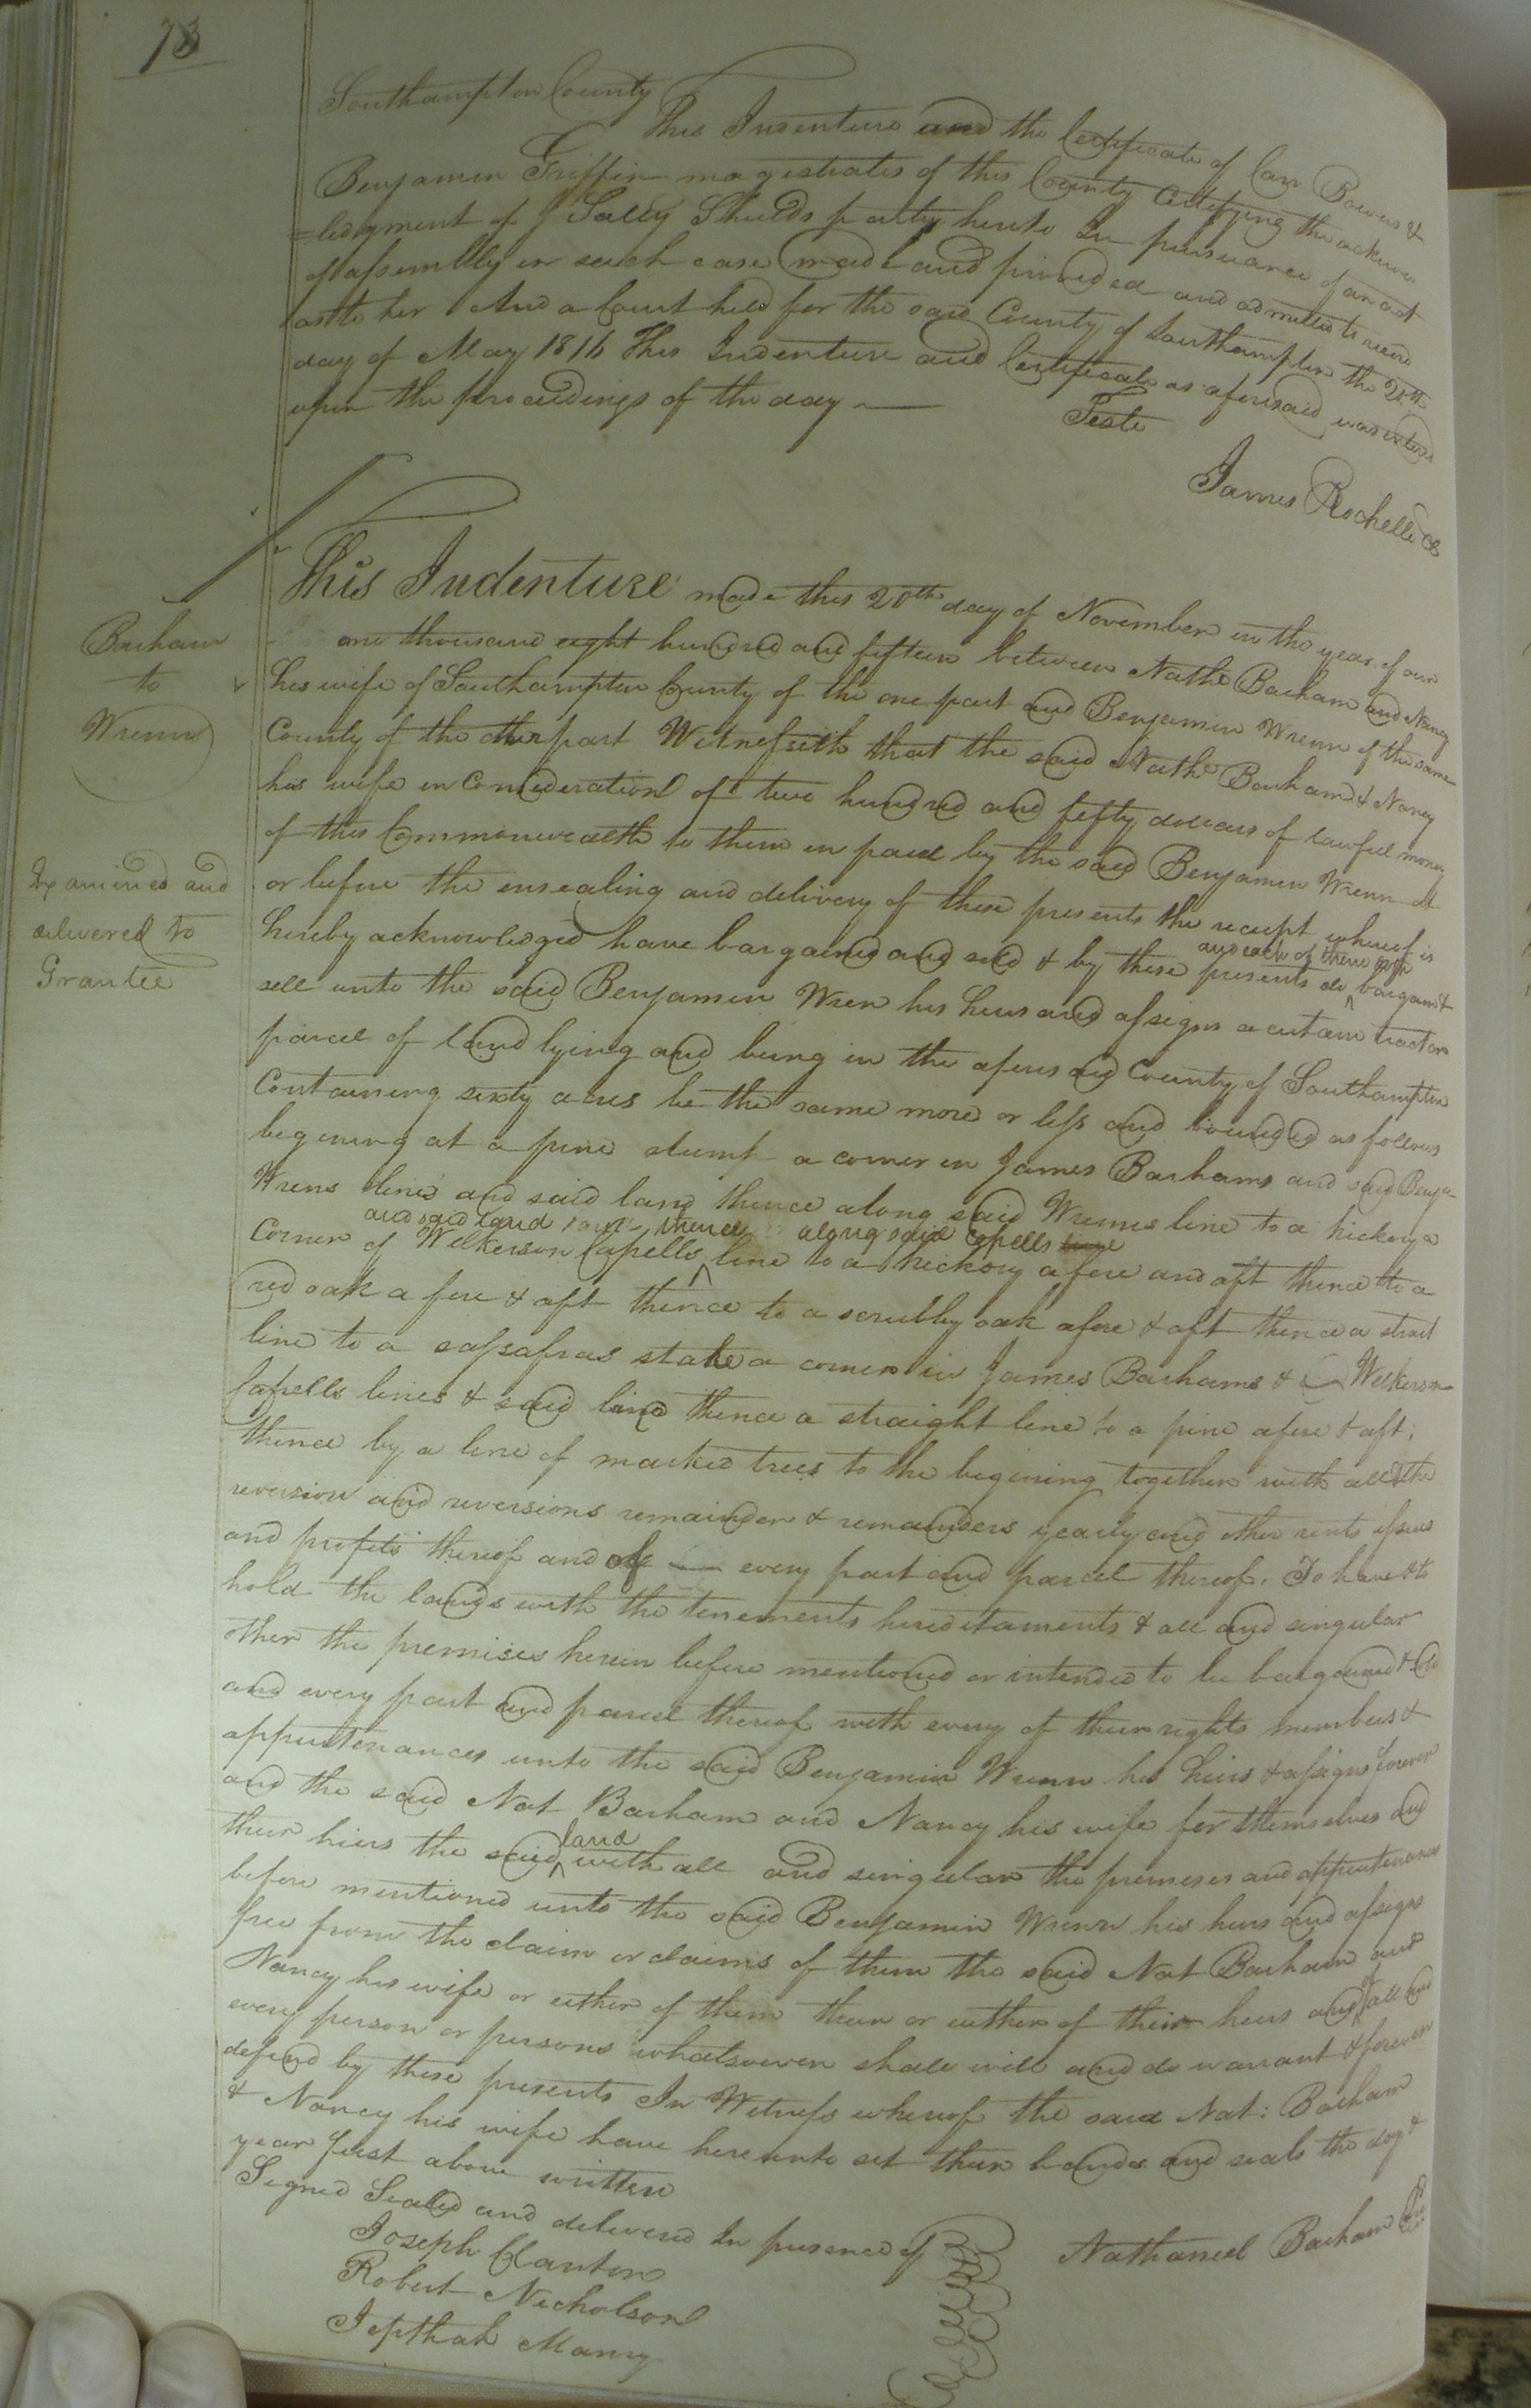 73
Southampton County
This Indenture and the Certificate of Carr Bowers &
Benjamin Griffin magistrates of this County Certifying the acknow
=ledgment of Sally Shields party hereto In pursuance of an act
of assembly in such case made and provided and admitted to record
as to her And a Court held for the said County of Southampton the 20th
day of May 1816 This Indenture and Certificate as aforesaid was entered
upon the proceedings of the day
Teste
James Rochelle
Barham
to
Wrenn
Examined and
delivered to
Grantee
This Indenture made this 20th day of November in the year of our
one thousand eight hundred and fifteen between Nathl Barham and Nancy
his wife of Southampton County of the one part and Benjamin Wrenn of the same
County of the other part Witnesseth that the said Nathl Barham & Nancy
his wife in Consideration of two hundred and fifty dollars of lawful money
of this Commonwealth to them in paid by the said Benjamin Wrenn at
or before the ensealing and delivery of these presents the receipt whereof is
hereby acknowledged have bargained and sold & by these presents do bargain &
and each of them doth
sell unto the said Benjamin Wren his heirs and assigns a certain tract or
parcel of land lying and being in the aforesaid County of Southampton
Containing sixty acres be the same more or less and bounded as follows
begining at a pine stump a corner in James Barhams and said Benja
Wrens lines and said land thence along said Wrenns line to a hickory a
and said land thence along said Capells line
Corner of Wilkerson Capells line to a hickory afore and aft thence to a
red oak a fore & aft thence to a scrubby oak afore & aft thence a strait
line to a sassafras stake a corner in James Barhams & Wilkerson
Capells lines & said land thence a straight line to a pine afore & aft,
thence by a line of marked trees to the begining together with all & the
reversion and reversions remainder & remainders yearly and other rents issues
and profits thereof and of every part and parcel thereof. To have & to
hold the lands with the tenements hereditaments & all and singular
other the premises herein before mentioned or intended to be bargained & sold
and every part and parcel thereof with every of their rights members &
appurtenances unto the said Benjamin Wrenn his heirs & assigns forever
and the said Nat Barham and Nancy his wife for themselves and
their hiers the said land with all and singular the premeses and appurtenances
before mentioned unto the said Benjamin Wrenn his heirs and assigns
free from the claim or claims of them the said Nat Barham and
Nancy his wife or either of them their or either of their heirs and of all and
every person or persons whatsoever shall will and do warrant & forever
defend by these presents In Witness whereof the said Nat: Barham
& Nancy his wife have hereunto set their hands and seals the day &
year first above written
Signed Sealed and delivered In presence of
Nathaniel Barham
Joseph Clanton
Robert Nicholson
Jepthah Marry